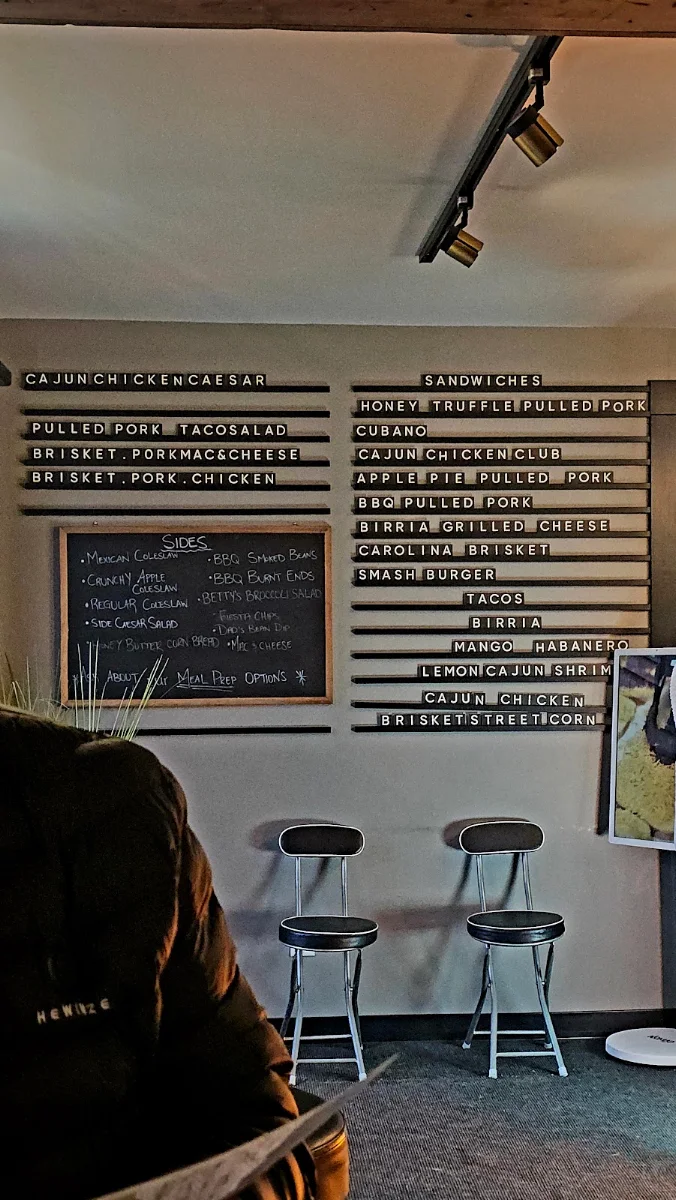 CAJUN CHICKEN CAESAR
PULLED PORK TACO SALAD
BRISKET.PORK MAC&CHEESE
BRISKET.PORK.CHICKEN
SIDES
• MEXICAN COLESLAW
• CRUNCHY APPLE
COLESLAW
• REGULAR COLESLAW
• SIDE CAESAR SALAD
• HONEY BUTTER CORN BREAD
• BBQ SMOKED BEANS
• BBQ BURNT ENDS
• BETTY'S BROCCOLI SALAD
• FIESTA CHIPS
• DAD'S BEAN DIP
• MAC & CHEESE
ABOUT MEAL PREP OPTIONS
SANDWICHES
HONEY TRUFFLE PULLED PORK
CUBANO
CAJUN CHICKEN CLUB
APPLE PIE PULLED PORK
BBQ PULLED PORK
BIRRIA GRILLED CHEESE
CAROLINA BRISKET
SMASH BURGER
TACOS
BIRRIA
MANGO HABANERO
LEMON CAJUN SHRIM
CAJUN CHICKEN
BRISKET STREET CORN